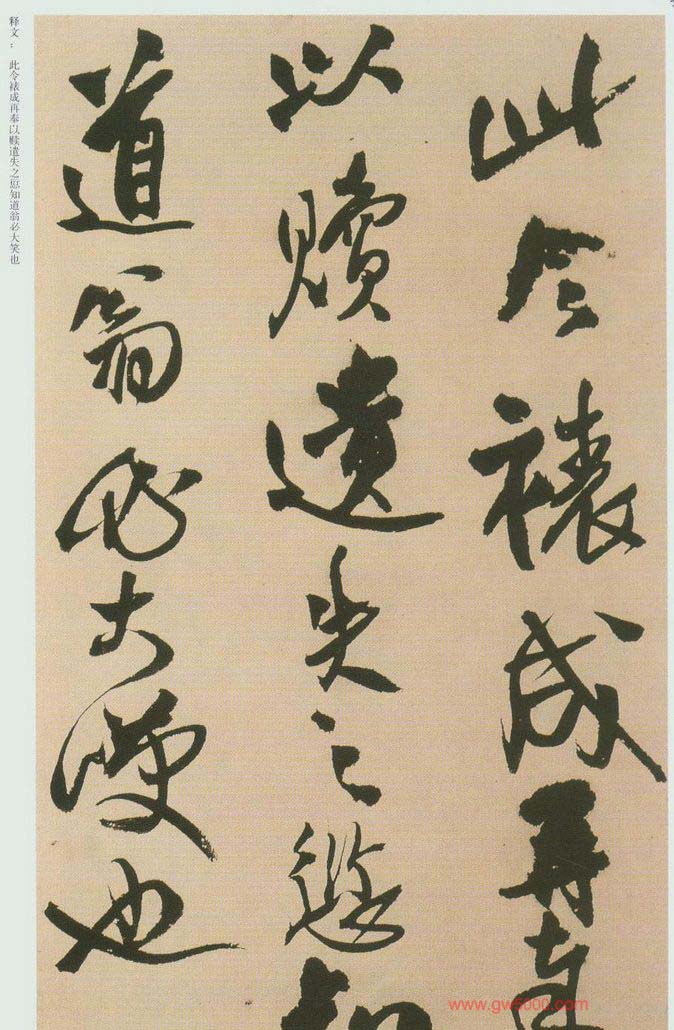 此令裱成再奉
以贖遺失之愆知
道翁必大噱也
释文： 此令裱成再奉以赎遣失之愆知道翁必大笑也
www.gw5000.com